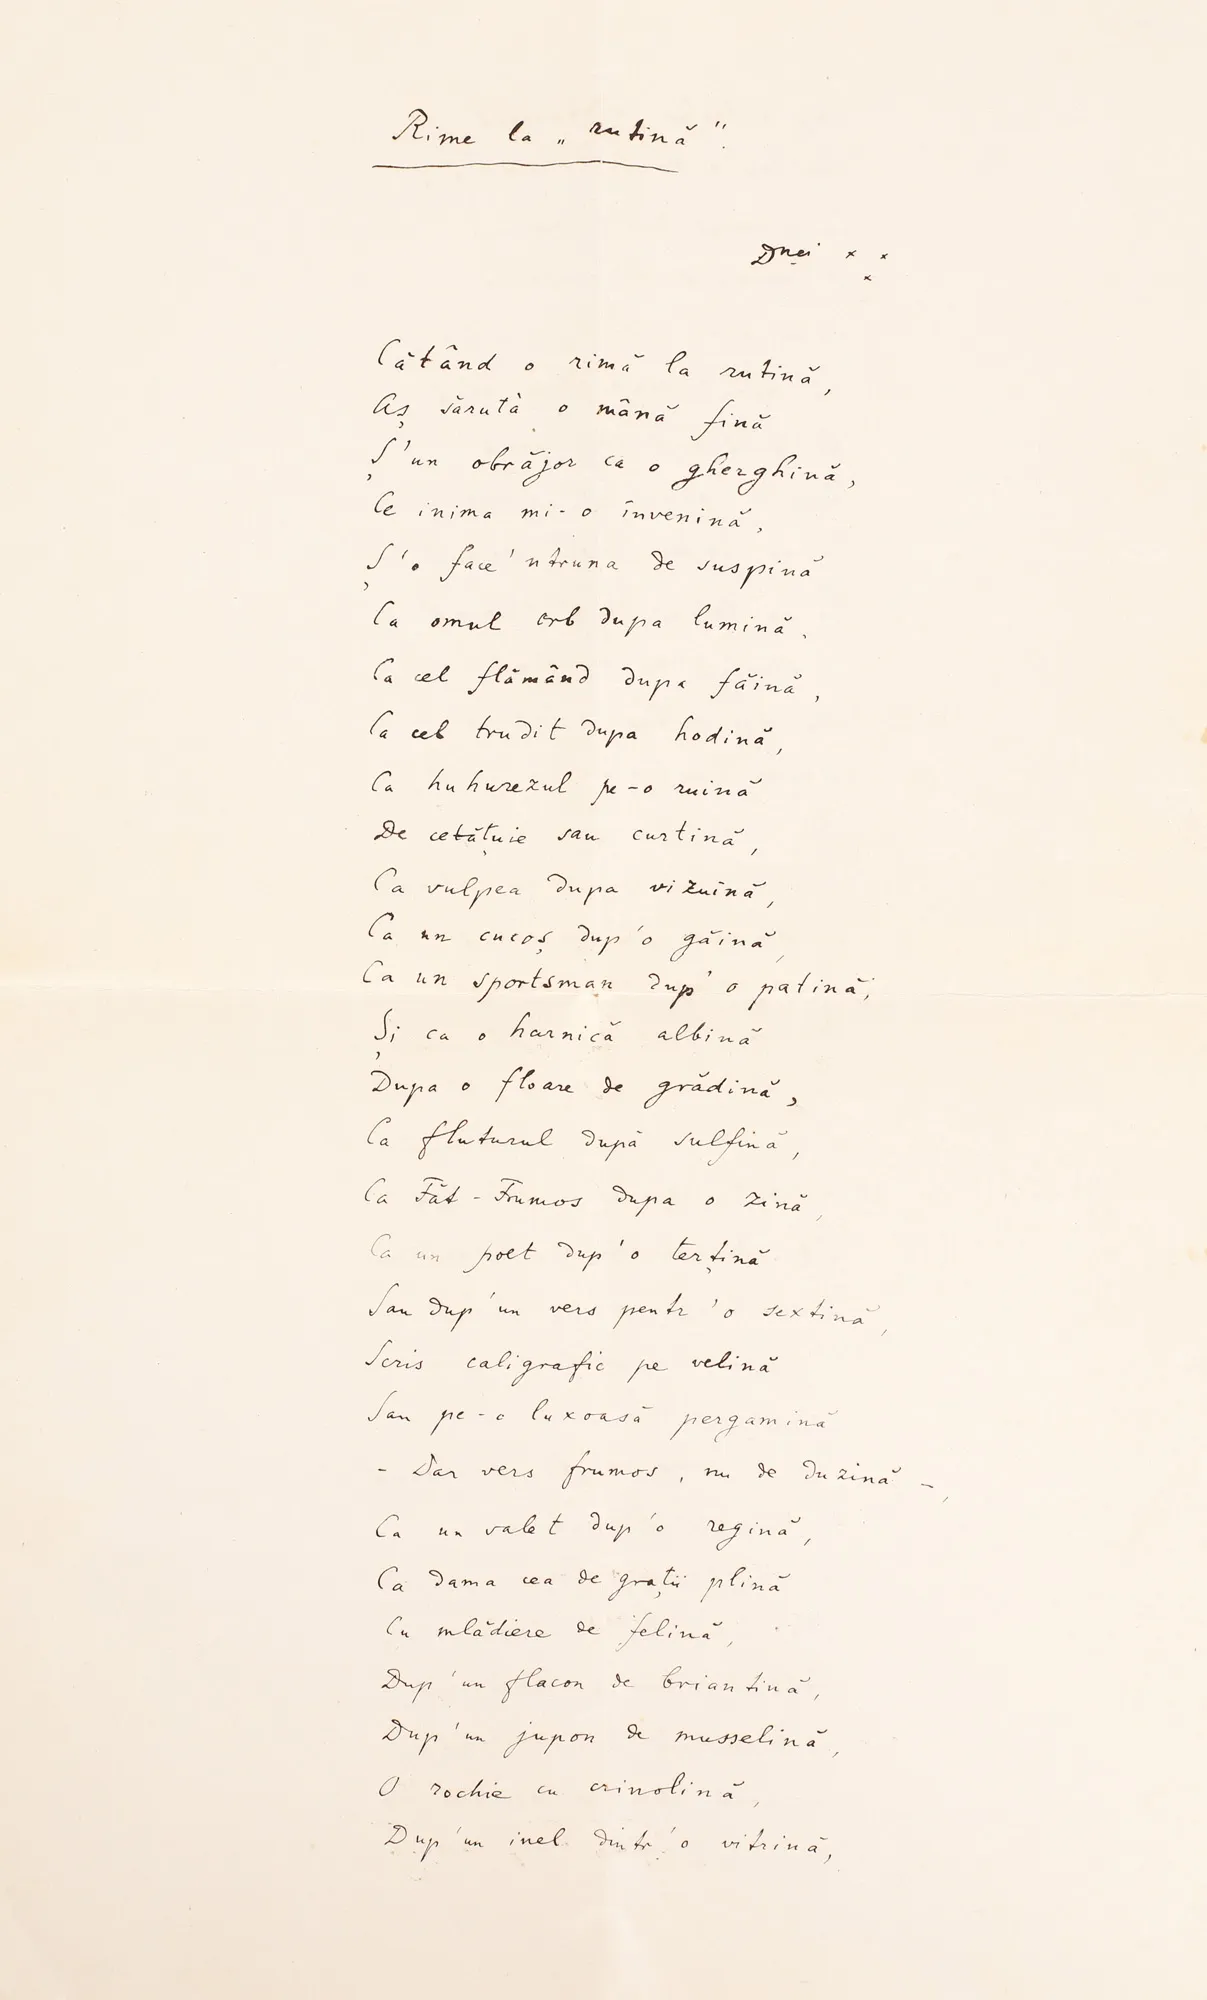 Rime la „rutină".
Dnei x x
x
Cătând o rimă la rutină,
Aș sărută o mână fină
Ș'un obrăjor ca o gherghină,
Ce inima mi-o învenină,
Ș'o face 'ntruna de suspină
Ca omul orb dupa lumină,
Ca cel flămând dupa făină,
Ca cel trudit dupa hodină,
Ca huhurezul pe-o ruină
De cetățuie sau curtină,
Ca vulpea dupa vizuină,
Ca un cucoș dup'o găină,
Ca un sportsman dup'o patină,
Și ca o harnică albină
Dupa o floare de grădină,
Ca fluturul după sulfină,
Ca Făt-Frumos dupa o zină,
Ca un poet dup'o terțină
Sau dup'un vers pentr'o sextină,
Scris caligrafic pe velină
Sau pe-o luxoasă pergamină
- Dar vers frumos, nu de duzină -,
Ca un valet dup'o regină,
Ca dama cea de grații plină
Cu mlădiere de felină,
Dup'un flacon de briantină,
Dup'un jupon de musselină,
O rochie cu crinolină,
Dup'un inel dintr'o vitrină,